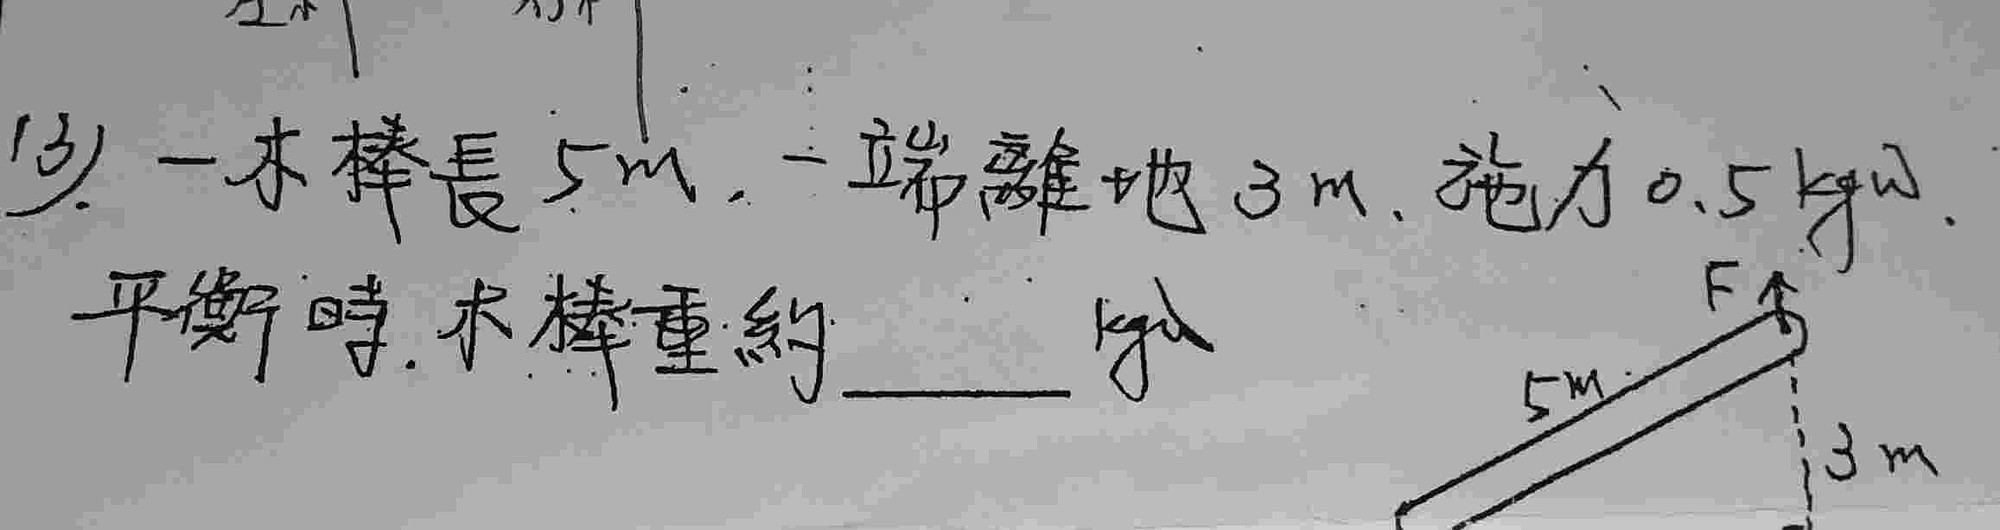 13). 一木棒長 5m, 一端離地 3m, 施力 0.5 kgw.
平衡時, 木棒重約____ kgw
F
5m
3m